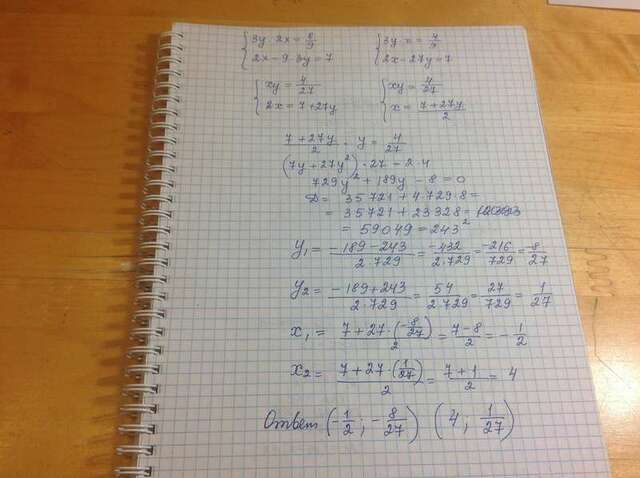 { 3y · 2x = 8/9   { 3y · x = 4/9
{ 2x - 9 · 3y = 7   { 2x - 27y = 7
{ xy = 4/27   { xy = 4/27
{ 2x = 7 + 27y   { x = (7 + 27y)/2
(7 + 27y)/2 · y = 4/27
(7y + 27y²) · 27 - 2 · 4
729y² + 189y - 8 = 0
D = 35721 + 4 · 729 · 8 =
= 35721 + 23328 =
= 59049 = 243²
y₁ = (-189 - 243)/(2 · 729) = -432/(2 · 729) = -216/729 = -8/27
y₂ = (-189 + 243)/(2 · 729) = 54/(2 · 729) = 27/729 = 1/27
x₁ = (7 + 27 · (-8/27))/2 = (7 - 8)/2 = -1/2
x₂ = (7 + 27 · (1/27))/2 = (7 + 1)/2 = 4
Ответ (-1/2 ; -8/27) (4 ; 1/27)